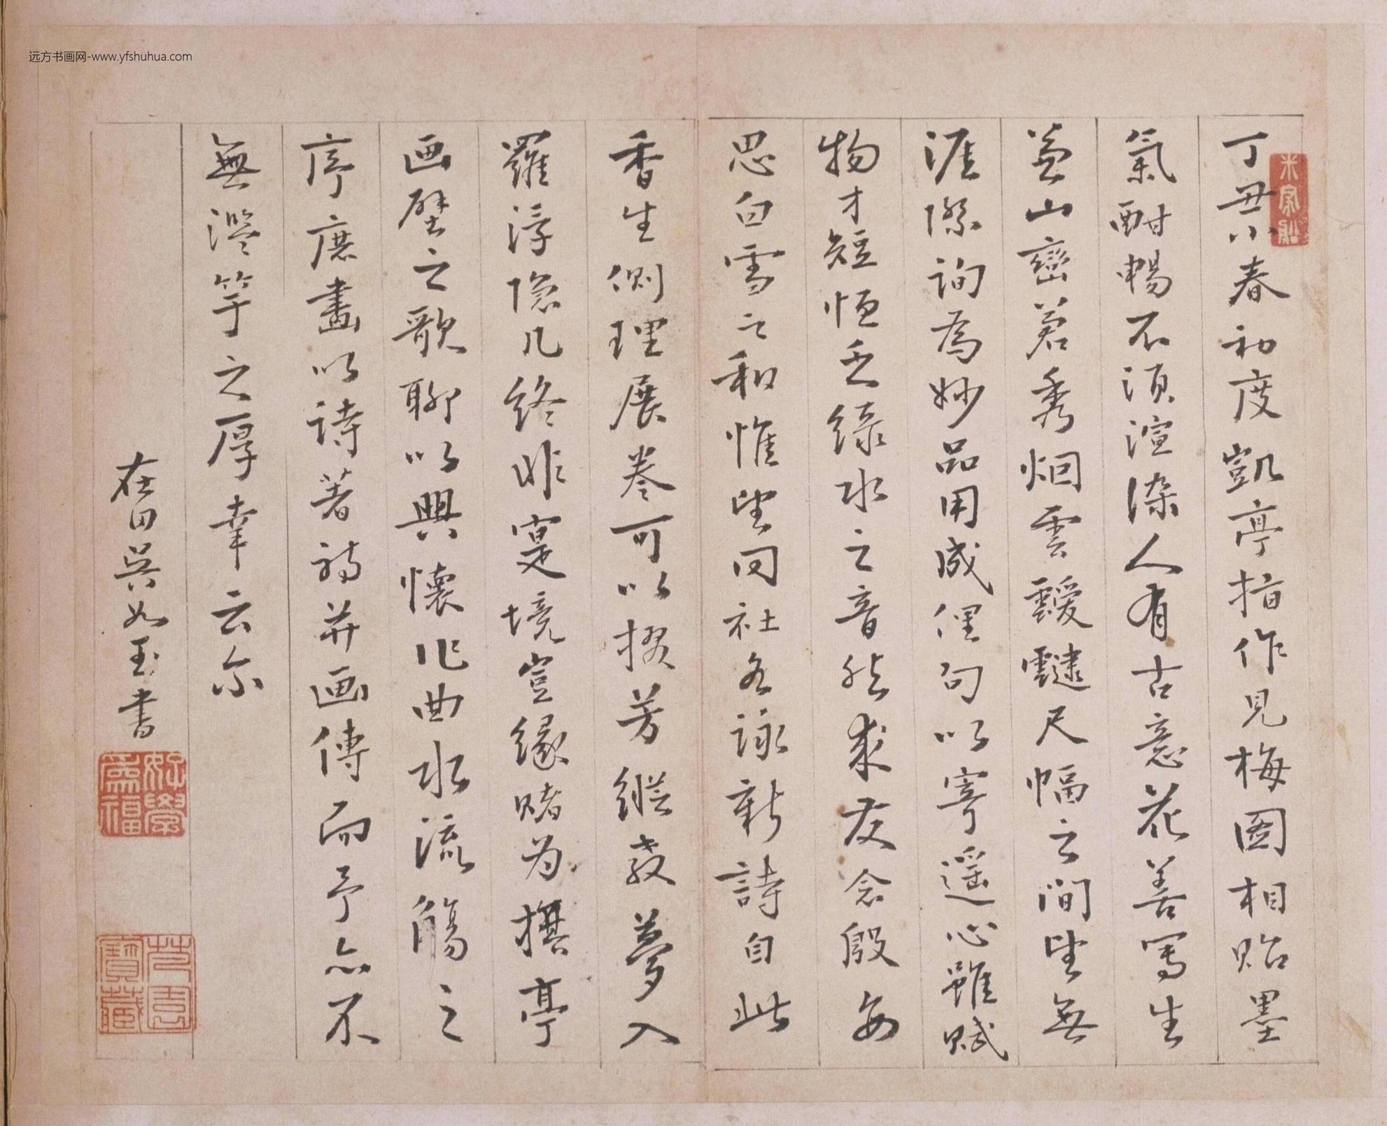 远方书画网-www.yfshuhua.com
丁丑小春初度凱亭指作見梅图相贻墨
氣酣暢不須渲染人有古意花善寫生
兼山巒蒼秀烟雲靉靆尺幅之间望無
涯際詢為妙品用成俚句以寄遥心雖賦
物才短恒乏緑水之音然求友念殷每
思白雪之和惟望同社各詠新詩自此
香生側理展卷可以掇芳縱教夢入
羅浮隐几終非寔境豈缘賭为撰亭
画壁之歌聊以興懷作曲水流觴之
序庶畫以詩著詩并画傳而予亦不
無濫竽之厚幸云尔
在田吳如玉書
好學為福
寶藏